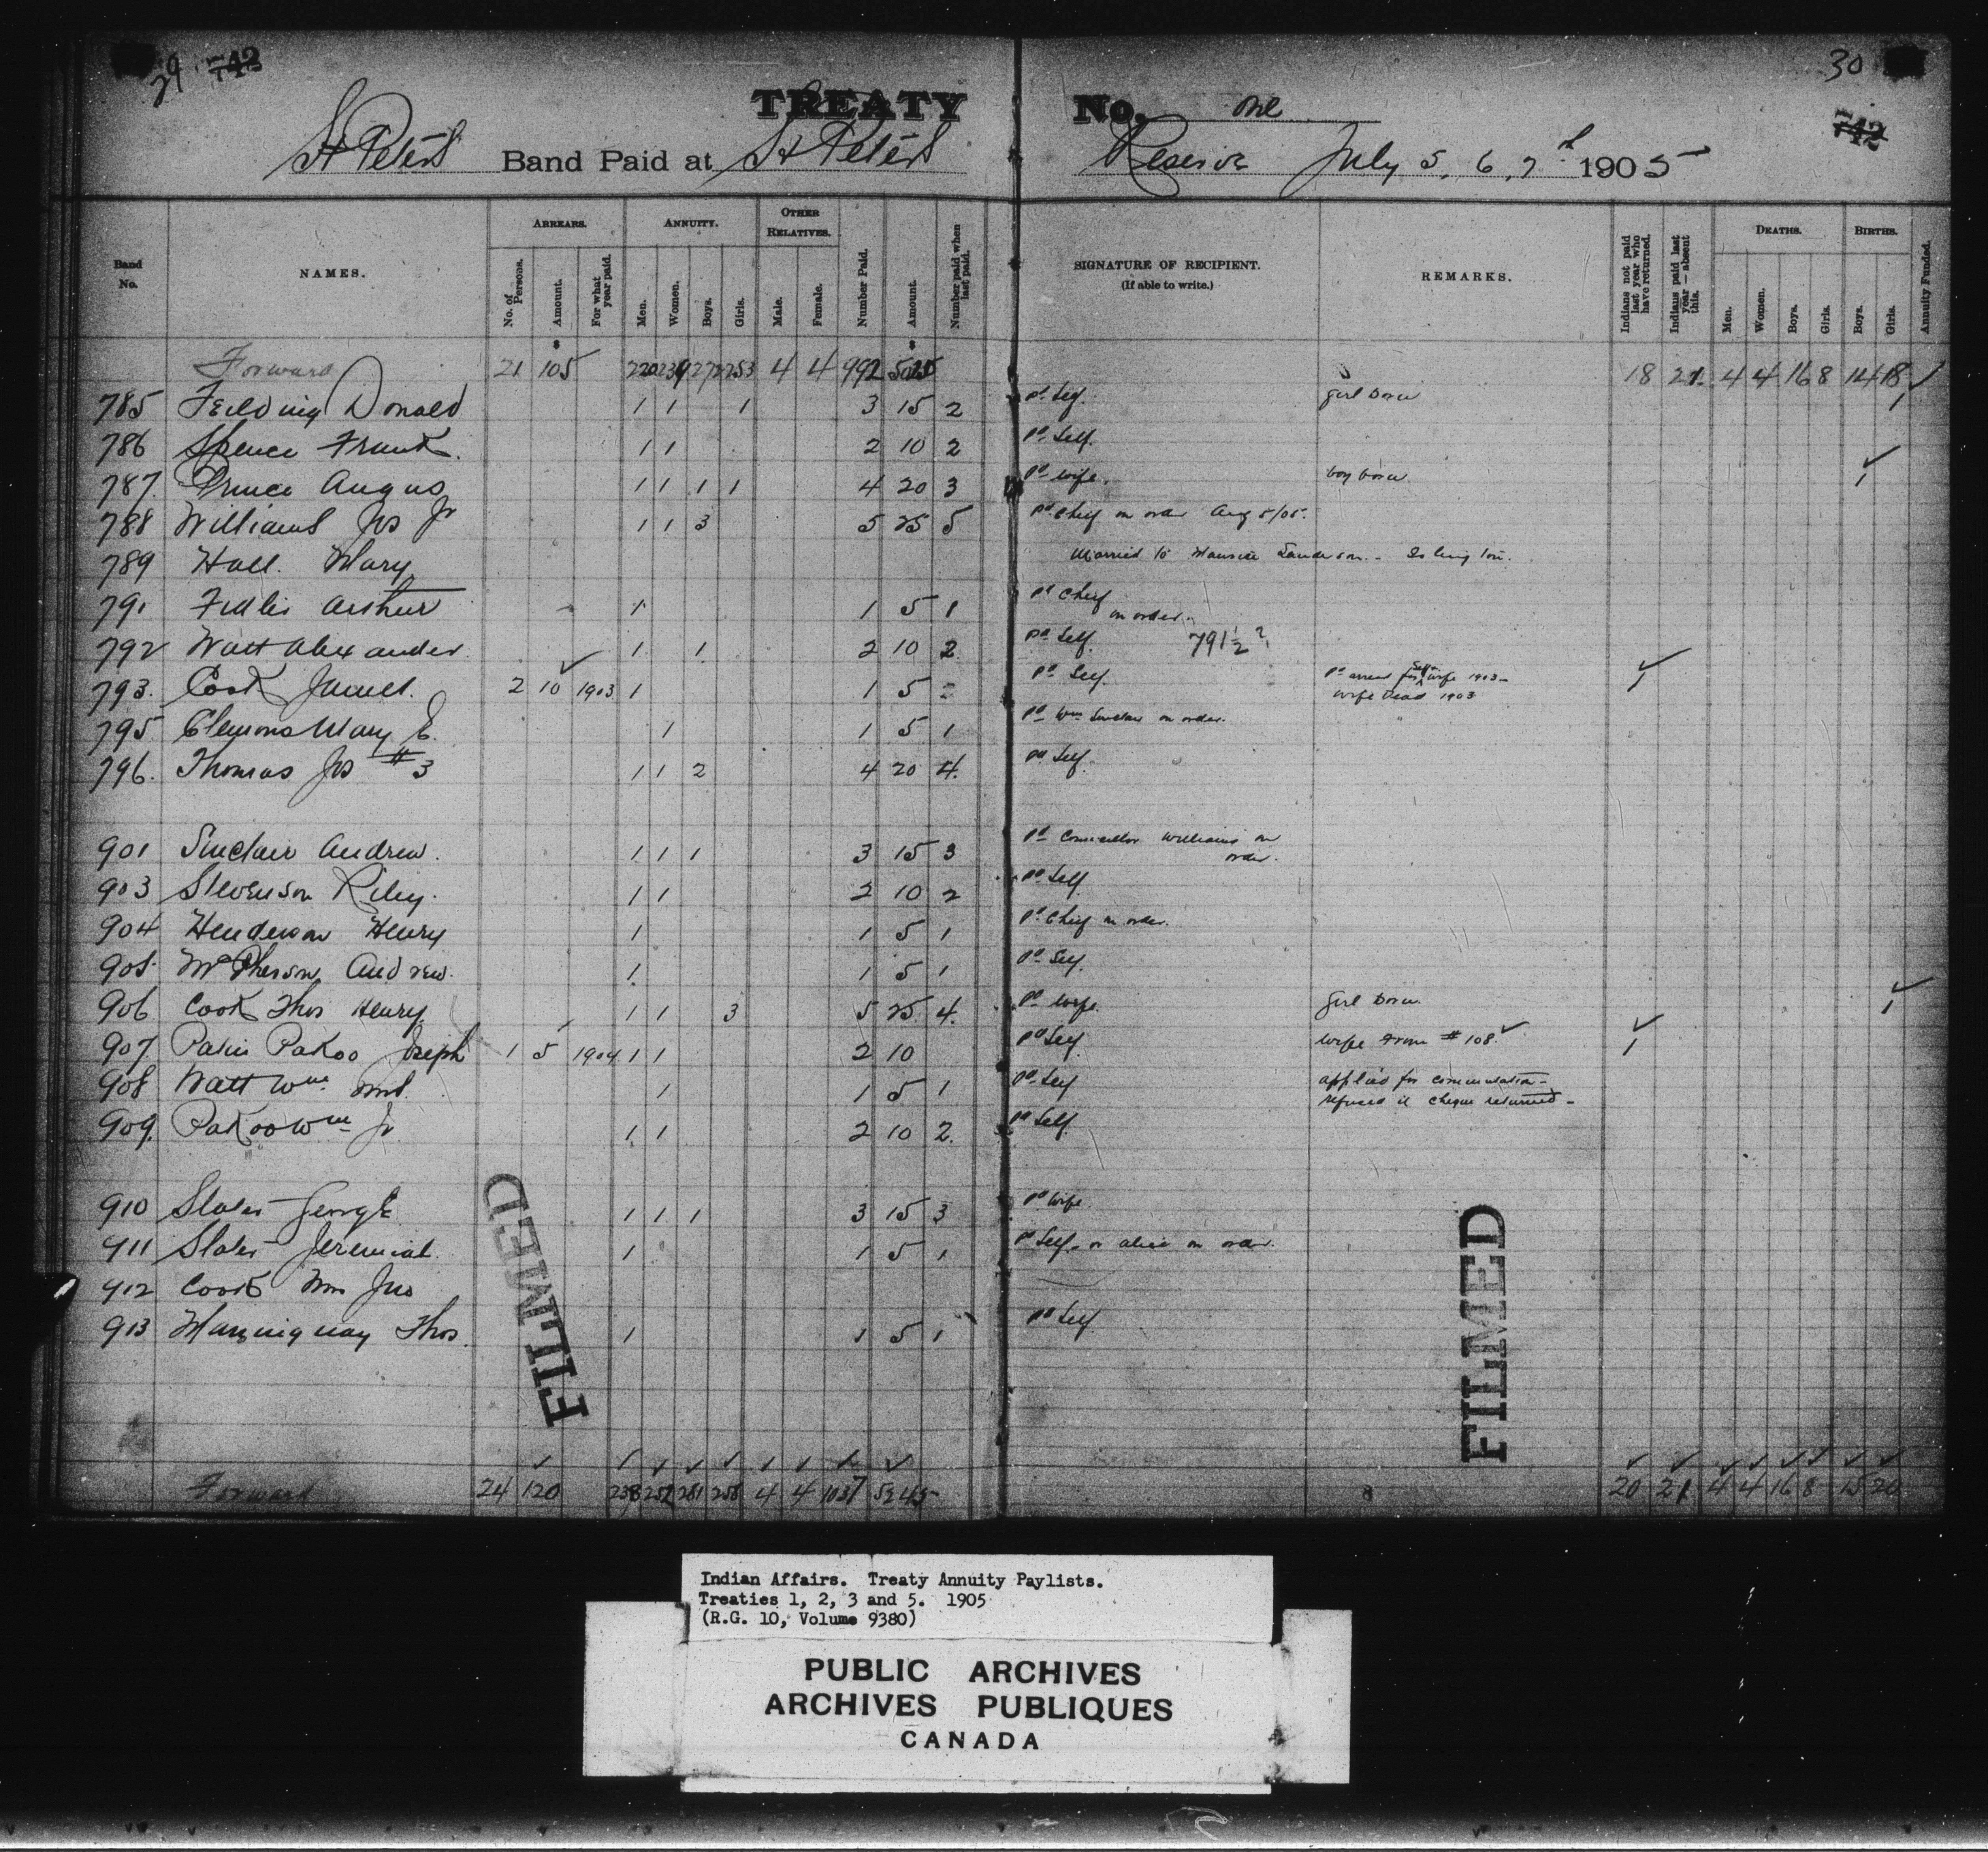 29 742
30
742
TREATY No. One
St Peters Band Paid at St Peters Reserve July 5, 6, 7th 1905
Band No. NAMES. ARREARS. No. of Persons. Amount. For what year paid. ANNUITY. Men. Women. Boys. Girls. OTHER RELATIVES. Male. Female. Number Paid. Amount. Number paid when last paid. SIGNATURE OF RECIPIENT. (If able to write.) REMARKS. Indians not paid last year who have returned. Indians paid last year — absent this. DEATHS. Men. Women. Boys. Girls. BIRTHS. Boys. Girls. Annuity Funded.
Forward 21 105 220 239 272 253 4 4 992 5025 18 21 4 4 16 8 14 18
785 Feilding Donald 1 1 1 3 15 2 pd Self. girl born 1
786 Spence Frank. 1 1 2 10 2 pd Self.
787. Prince Angus 1 1 1 1 4 20 3 pd wife. boy born 1
788 Williams Jos Jr 1 1 3 5 25 5 pd Chief on order Aug 5/05.
789 Hall. Mary Married to Maurice Sanderson - Islington.
791 Fidler Arthur 1 1 5 1 pd Chief on order.
792 Watt Alexander. 1 1 2 10 2 pd Self. 791 1/2 ?
793. Cook James. 2 10 1903 1 1 5 pd Self. pd arrears for Self & wife 1903 - wife dead 1903 1
795 Clemons Mary E. 1 1 5 1 pd Wm Sinclair on order.
796. Thomas Jos #3 1 1 2 4 20 4. pd Self.
901 Sinclair Andrew. 1 1 1 3 15 3 pd Councillor Williams on order.
903 Stevenson Riley. 1 1 2 10 2 pd Self
904 Henderson Henry 1 1 5 1 pd Chief on order.
905 McPherson Andrew. 1 1 5 1 pd Self.
906 Cook Thos Henry 1 1 3 5 25 4. pd wife. girl born. 1
907 Pakoo Joseph 1 5 1904 1 1 2 10 pd Self. wife from #108 1
908 Watt Wm Mrs. 1 1 5 1 pd Self applied for commutation - refused it cheque returned -
909. Pakoo Wm Jr 1 1 2 10 2. pd Self
910 Slater George 1 1 1 3 15 3 pd Wife.
911 Slater Jeremiah. 1 1 5 1 pd Self. or Alice on order.
912 Cook Wm Jno
913 Thos. 1 1 5 1 pd Self
FILMED
FILMED
Forward 24 120 238 252 281 258 4 4 1037 5245 8 20 21 4 4 16 8 15 20
Indian Affairs. Treaty Annuity Paylists.
Treaties 1, 2, 3 and 5. 1905
(R.G. 10, Volume 9380)
PUBLIC ARCHIVES
ARCHIVES PUBLIQUES
CANADA